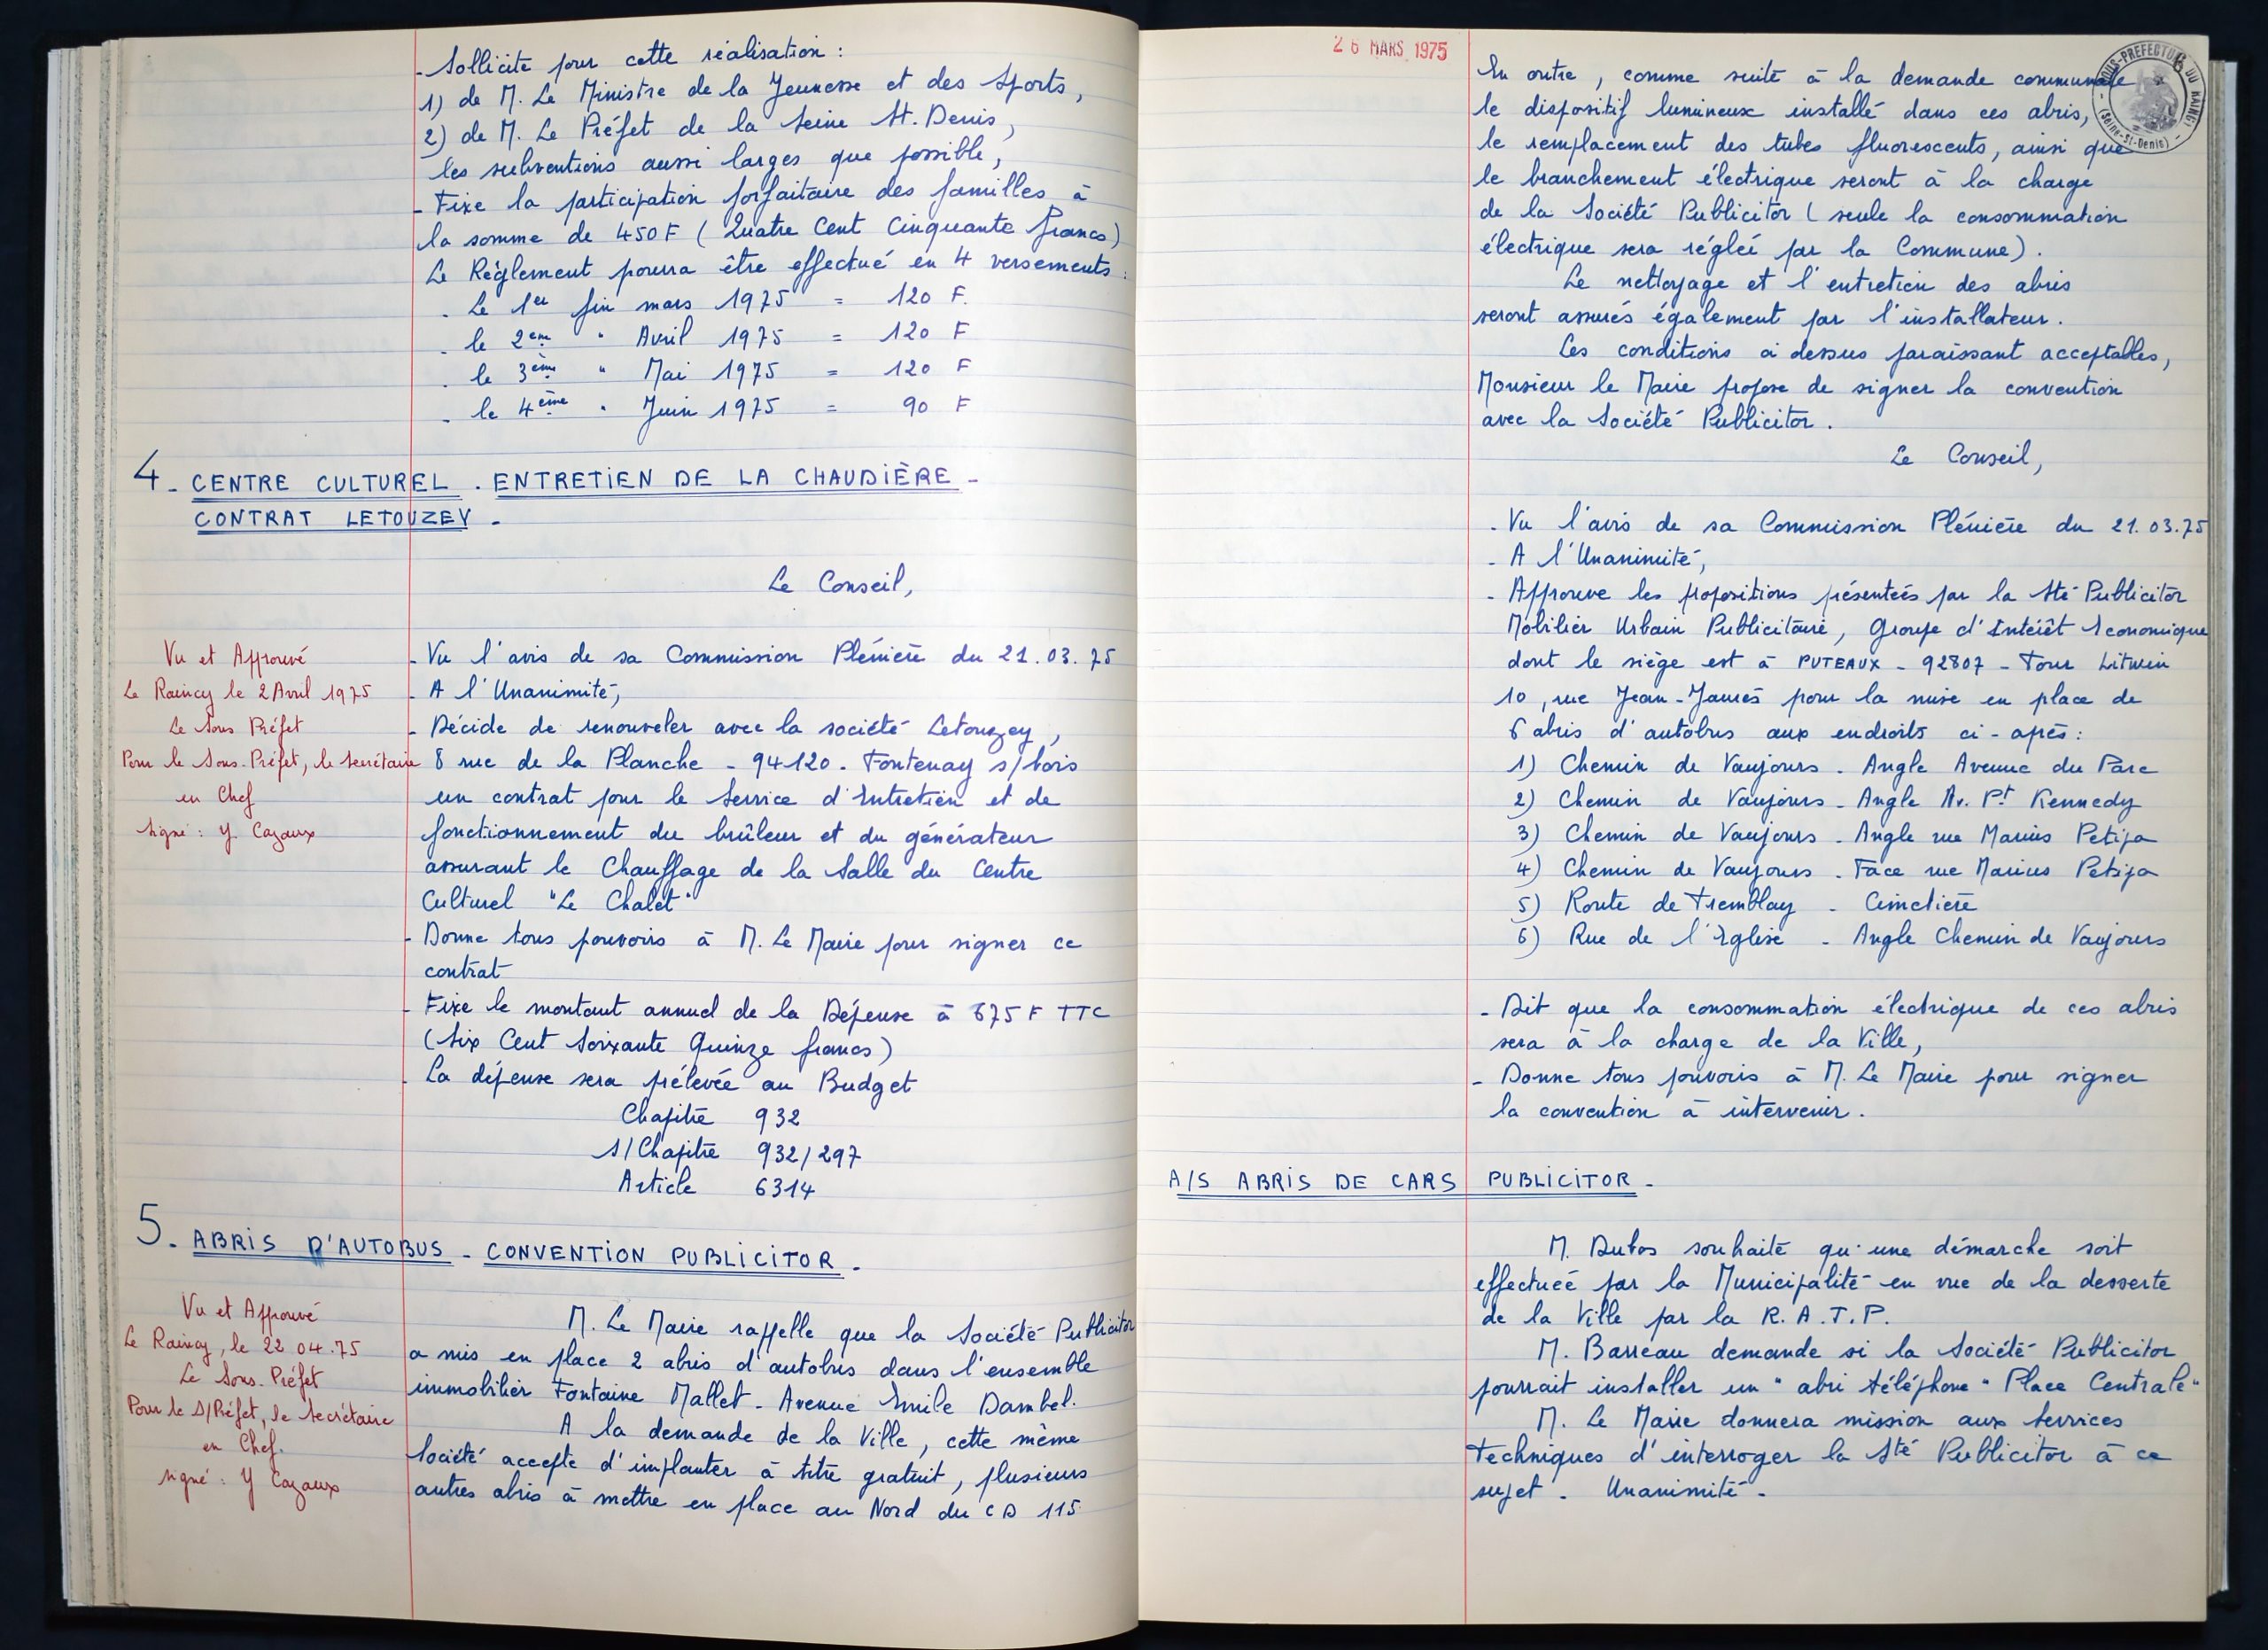 - Sollicite pour cette réalisation :
1) de M. Le Ministre de la Jeunesse et des Sports,
2) de M. Le Préfet de la Seine St. Denis,
les subventions aussi larges que possible,
- Fixe la participation forfaitaire des familles à
la somme de 450 F (Quatre Cent Cinquante francs)
Le Règlement pourra être effectué en 4 versements :
. Le 1er fin mars 1975 = 120 F.
. le 2eme " Avril 1975 = 120 F
. le 3ème " Mai 1975 = 120 F
. le 4ème " Juin 1975 = 90 F
4 - CENTRE CULTUREL . ENTRETIEN DE LA CHAUDIÈRE -
CONTRAT LETOUZEY -
Le Conseil,
Vu et Approuvé
Le Raincy le 2 Avril 1975
Le Sous Préfet
Pour le Sous-Préfet, le Secrétaire
en Chef
Signé : Y. Cazaux
- Vu l'avis de sa Commission Plénière du 21.03.75
- A l'Unanimité,
- Décide de renouveler avec la société Letouzey,
8 rue de la Planche - 94120 - Fontenay s/bois
un contrat pour le Service d'Entretien et de
fonctionnement du brûleur et du générateur
assurant le Chauffage de la Salle du Centre
Culturel "Le Chalet"
- Donne tous pouvoirs à M. Le Maire pour signer ce
contrat
- Fixe le montant annuel de la Dépense à 675 F TTC
(Six Cent Soixante Quinze francs)
- La dépense sera prélevée au Budget
Chapitre 932
S/Chapitre 932/297
Article 6314
5 - ABRIS D'AUTOBUS - CONVENTION PUBLICITOR -
Vu et Approuvé
Le Raincy, le 22.04.75
Le Sous-Préfet
Pour le S/Préfet, le Secrétaire
en Chef.
signé : Y Cazaux
M. Le Maire rappelle que la Société Publicitor
a mis en place 2 abris d'autobus dans l'ensemble
immobilier Fontaine Mallet - Avenue Emile Dambel.
A la demande de la Ville, cette même
Société accepte d'implanter à titre gratuit, plusieurs
autres abris à mettre en place au Nord du CD 115
26 MARS 1975
SOUS-PREFECTURE DU RAINCY
(Seine-St-Denis)
En outre, comme suite à la demande communale
le dispositif lumineux installé dans ces abris,
le remplacement des tubes fluorescents, ainsi que
le branchement électrique seront à la charge
de la Société Publicitor (seule la consommation
électrique sera réglée par la Commune).
Le nettoyage et l'entretien des abris
seront assurés également par l'installateur.
Les conditions ci dessus paraissant acceptables,
Monsieur le Maire propose de signer la convention
avec la Société Publicitor.
Le Conseil,
- Vu l'avis de sa Commission Plénière du 21.03.75
- A l'Unanimité,
- Approuve les propositions présentées par la Sté Publicitor
Mobilier Urbain Publicitaire, Groupe d'Intérêt Economique
dont le siège est à PUTEAUX - 92807 - Tour Litwin
10, rue Jean-Jaurès pour la mise en place de
6 abris d'autobus aux endroits ci-après :
1) Chemin de Vaujours - Angle Avenue du Parc
2) Chemin de Vaujours - Angle Av. Pt Kennedy
3) Chemin de Vaujours - Angle rue Marius Petipa
4) Chemin de Vaujours - Face rue Marius Petipa
5) Route de Tremblay - Cimetière
6) Rue de l'Eglise - Angle Chemin de Vaujours
- Dit que la consommation électrique de ces abris
sera à la charge de la Ville,
- Donne tous pouvoirs à M. Le Maire pour signer
la convention à intervenir.
A/S ABRIS DE CARS PUBLICITOR -
M. Dubos souhaite qu'une démarche soit
effectuée par la Municipalité en vue de la desserte
de la Ville par la R.A.T.P.
M. Barreau demande si la Société Publicitor
pourrait installer un "abri téléphone" Place Centrale"
M. Le Maire donnera mission aux Services
Techniques d'interroger la Sté Publicitor à ce
sujet. Unanimité.